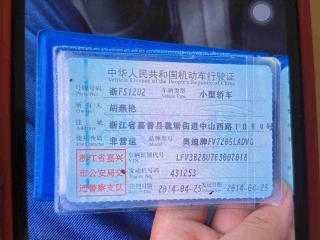 中华人民共和国机动车行驶证
Vehicle License of the People's Republic of China
号牌号码 浙F51202 车辆类型 小型轿车
所有人 胡燕艳
住址 浙江省嘉善县魏塘街道中山西路1099号
使用性质 非营运 奥迪牌FV7205LADWG
浙江省嘉兴市公安局交通警察支队
车辆识别代号 LFV3B28U7E3007018
VIN
发动机号码 431253
注册日期 2014-04-25 发证日期 2014-04-25